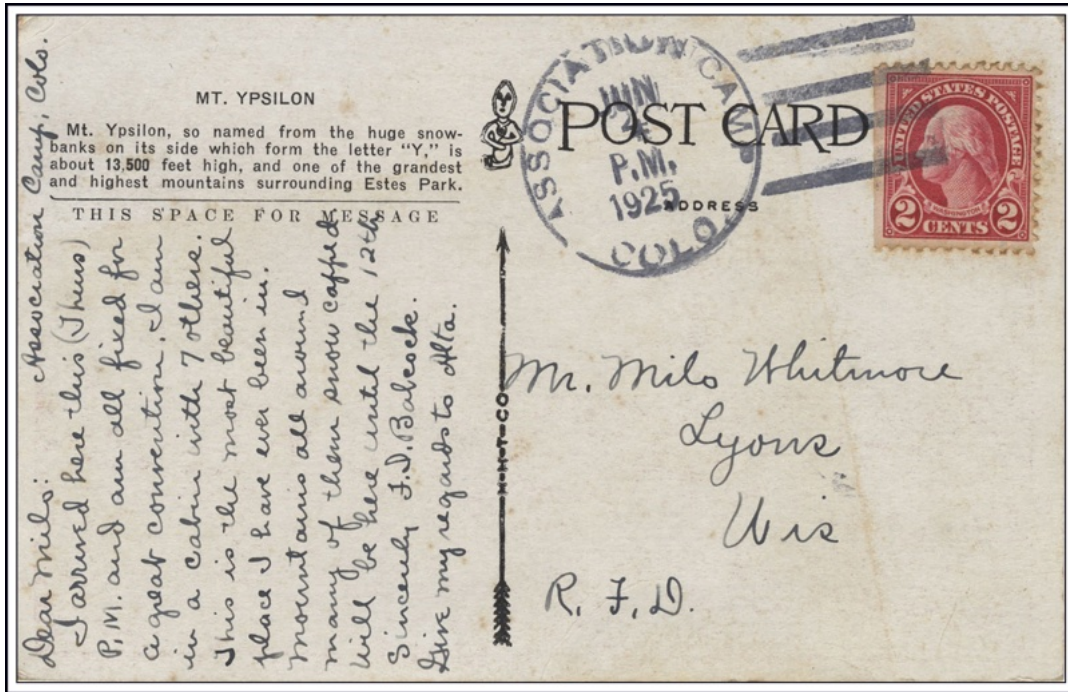 MT. YPSILON
Mt. Ypsilon, so named from the huge snow-
banks on its side which form the letter "Y," is
about 13,500 feet high, and one of the grandest
and highest mountains surrounding Estes Park.
THIS SPACE FOR MESSAGE
Association Camp, Colo.
Dear Milo:
I arrived here this (Thurs)
P.M. and am all fixed for
a great convention. I am
in a cabin with 7 others.
This is the most beautiful
place I have ever been in.
Mountains all around
many of them snow capped
Will be here until the 12th
Sincerely F.D. Babcock.
Give my regards to Alta.
H-H-T-CO
POST CARD
ADDRESS
ASSOCIATION CAMP
JUN
P.M.
1925
COLO.
UNITED STATES POSTAGE
WASHINGTON
2 CENTS 2
Mr. Milo Whitmore
Lyons
Wis
R. F. D.